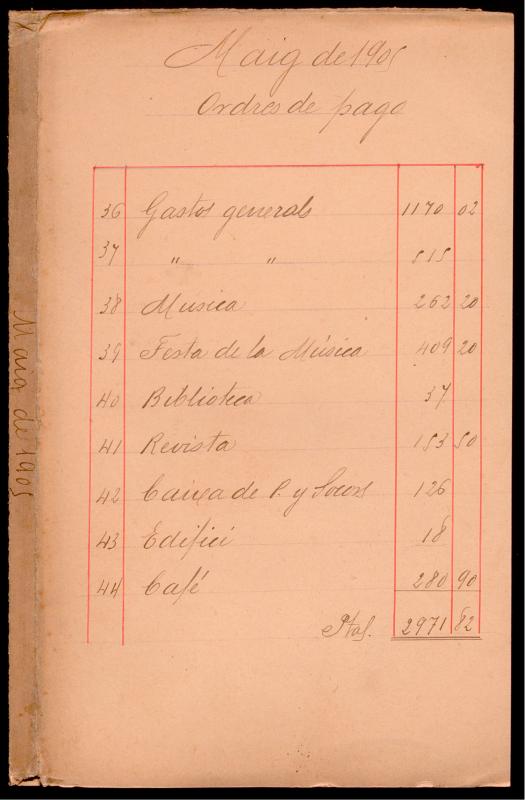 Maig de 1905
Ordres de pago
36 Gastos generals 1170 02
37 " " 515
38 Musica 262 20
39 Festa de la Música 409 20
40 Biblioteca 37
41 Revista 153 50
42 Caixa de P. y Socors 126
43 Edifici 18
44 Café 280 90
Ptas. 2971 82
Maig de 1905